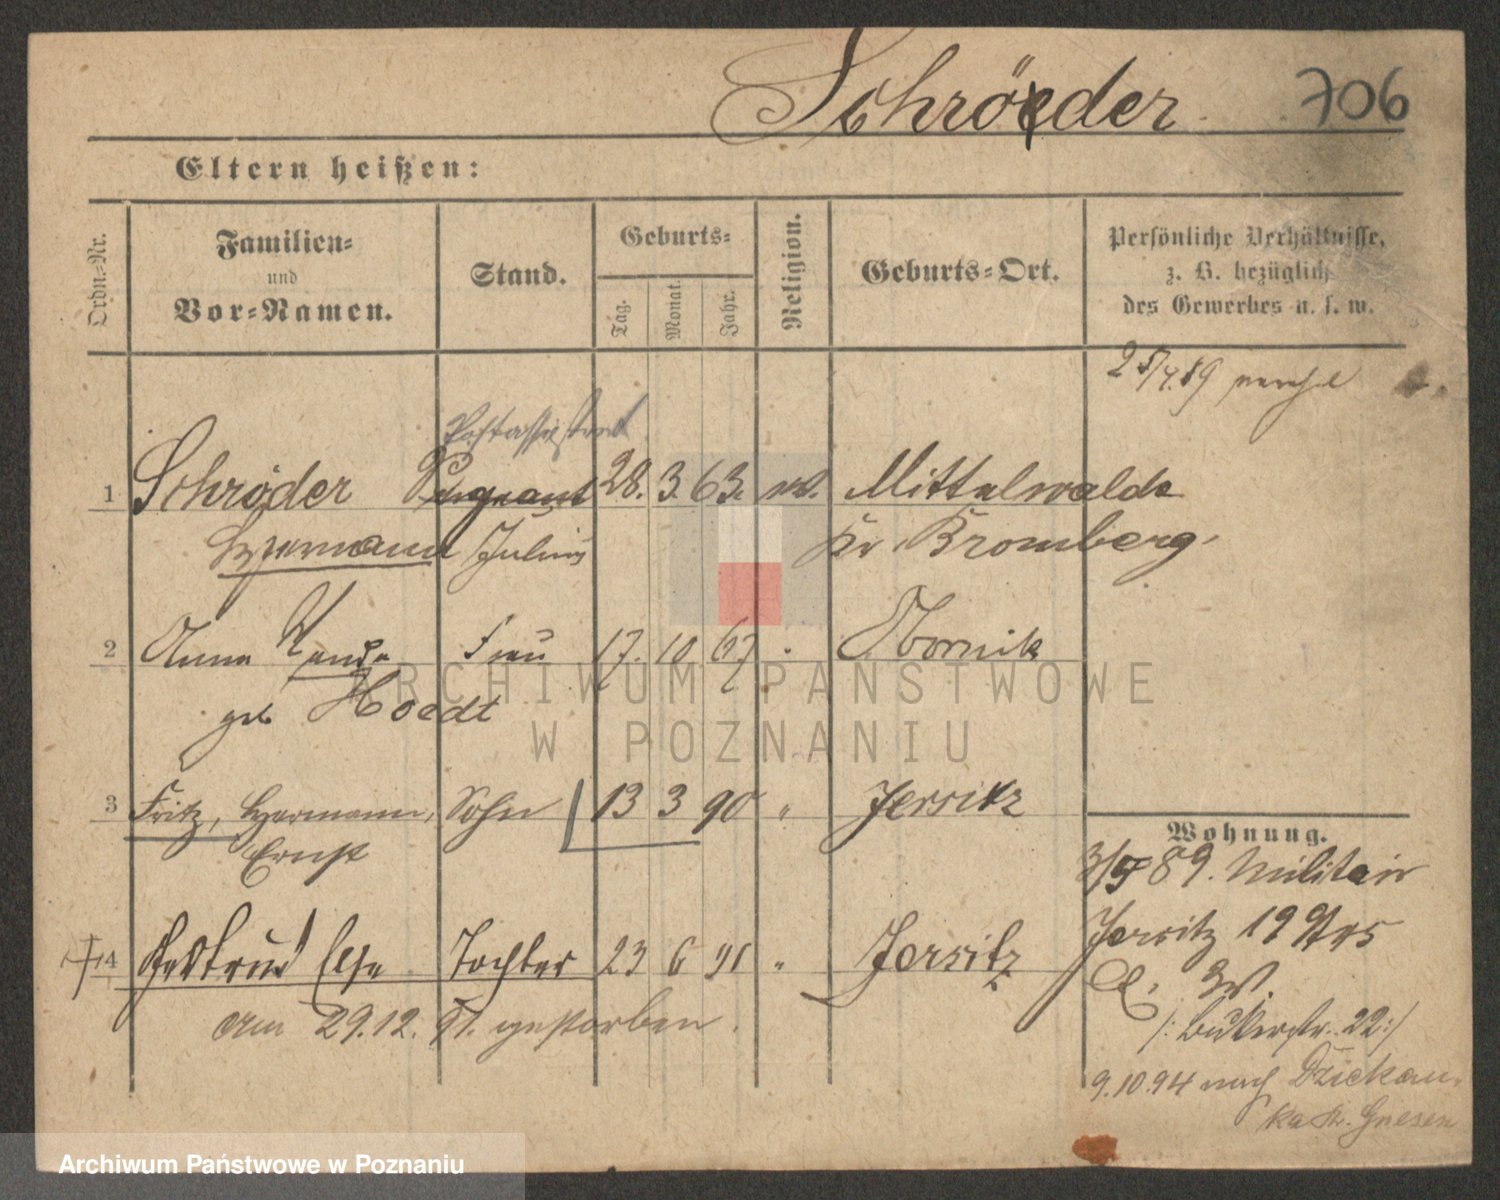 Schröder 706
Eltern heißen:
Ordn.-Nr.
Familien-
und
Vor-Namen.
Stand.
Geburts-
Tag.
Monat.
Jahr.
Religion.
Geburts-Ort.
Persönliche Verhältnisse,
z. B. bezüglich
des Gewerbes u. s. w.
Postassistent
1 Schröder Sergeant 28. 3. 63. ev. Mittelwalde
Hermann Julius Kr. Bromberg.
2 Anna Wanda Frau 17. 10. 67 " Kornik
geb Hoedt
3 Fritz, Hermann, Sohn 13 3 90 " Jersitz
Ernst
Wohnung.
3/5 89. Militair
4 Gertrud Else Tochter 23 6 91 " Jersitz
Jersitz 19
am 29.12. 91. gestorben.
/: Bukerstr. 22:/
9.10.94 nach Dziekan
ka Kr. Gnesen
ARCHIWUM PAŃSTWOWE
W POZNANIU
Archiwum Państwowe w Poznaniu